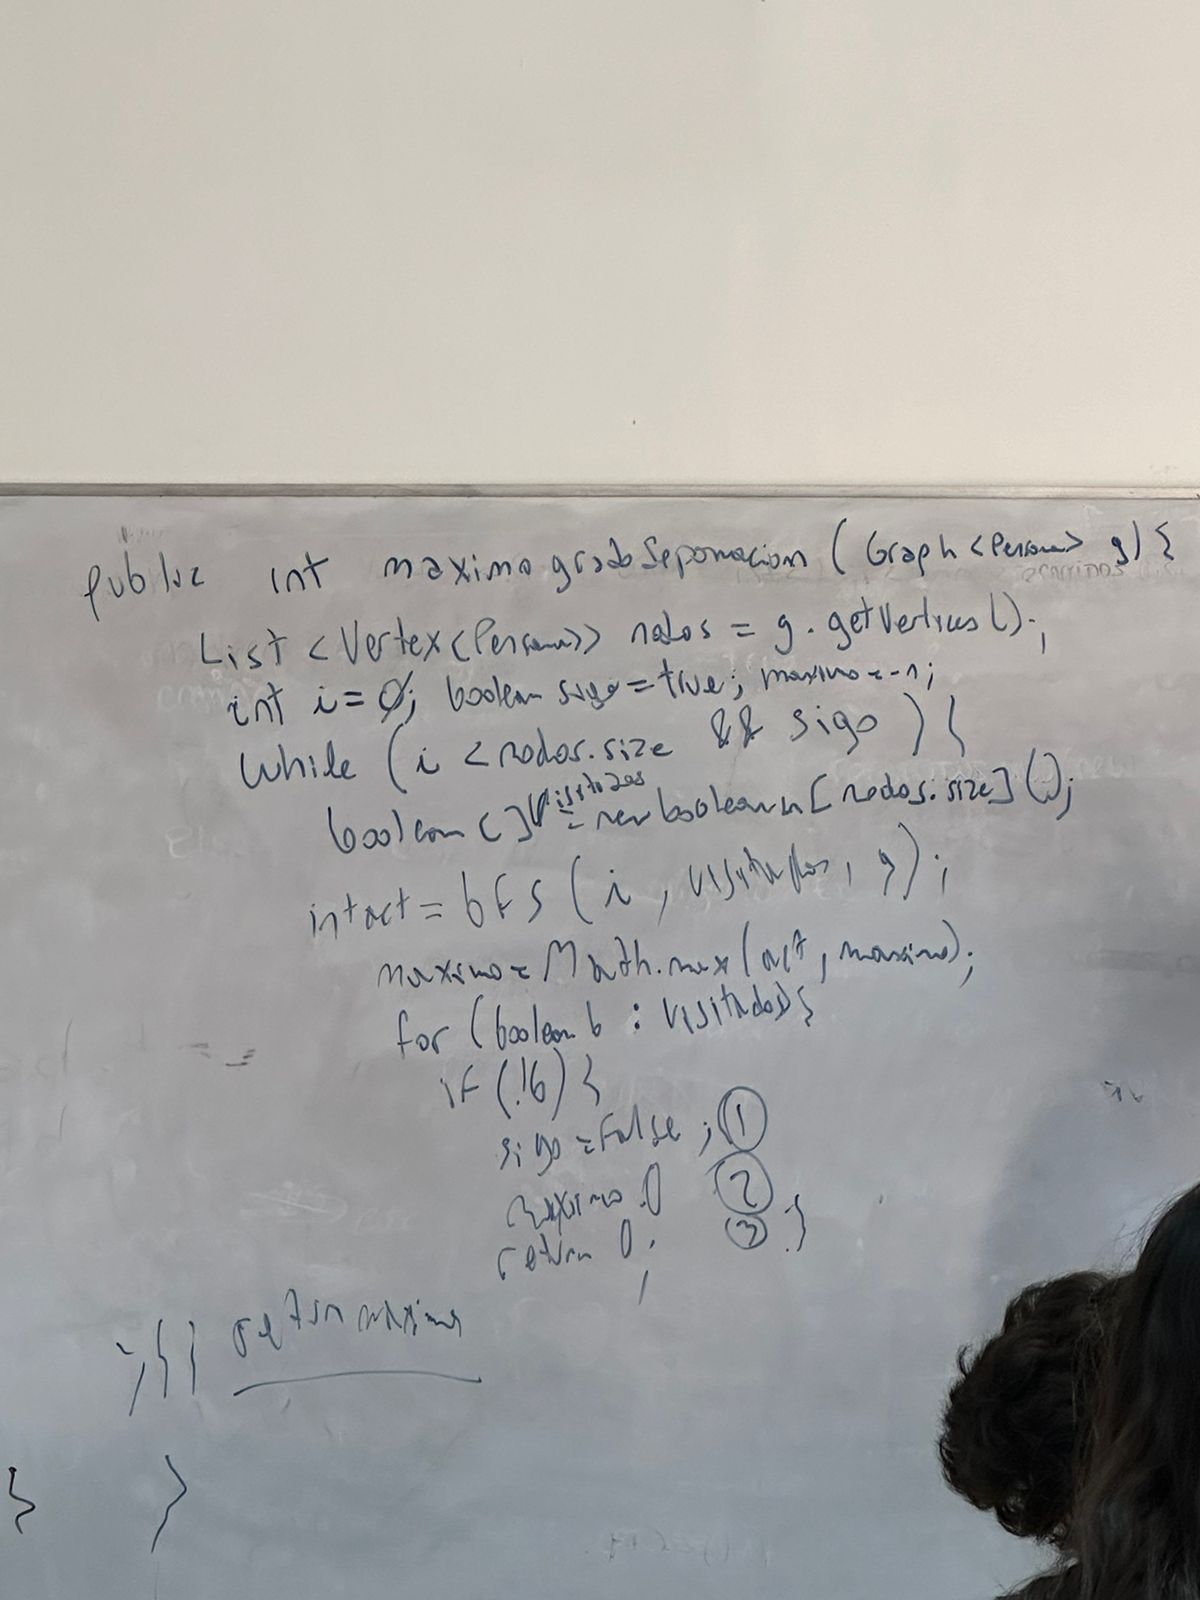 public int maximogradoSeparacion (Graph <Persona> g) {
List <Vertex<Persona>> nodos = g.getVertices();
int i=0; boolean sigo=true; maximo=-1;
While (i < nodos.size && sigo ) {
boolean []visitados = new boolean[nodos.size]();
int act = bfs (i, visitados, g);
maximo = Math.max(act, maximo);
for (boolean b : visitados){
if (!b) {
sigo=false; 1
maximo 0 2
return 0; 3 }
}}} return maximo
} }